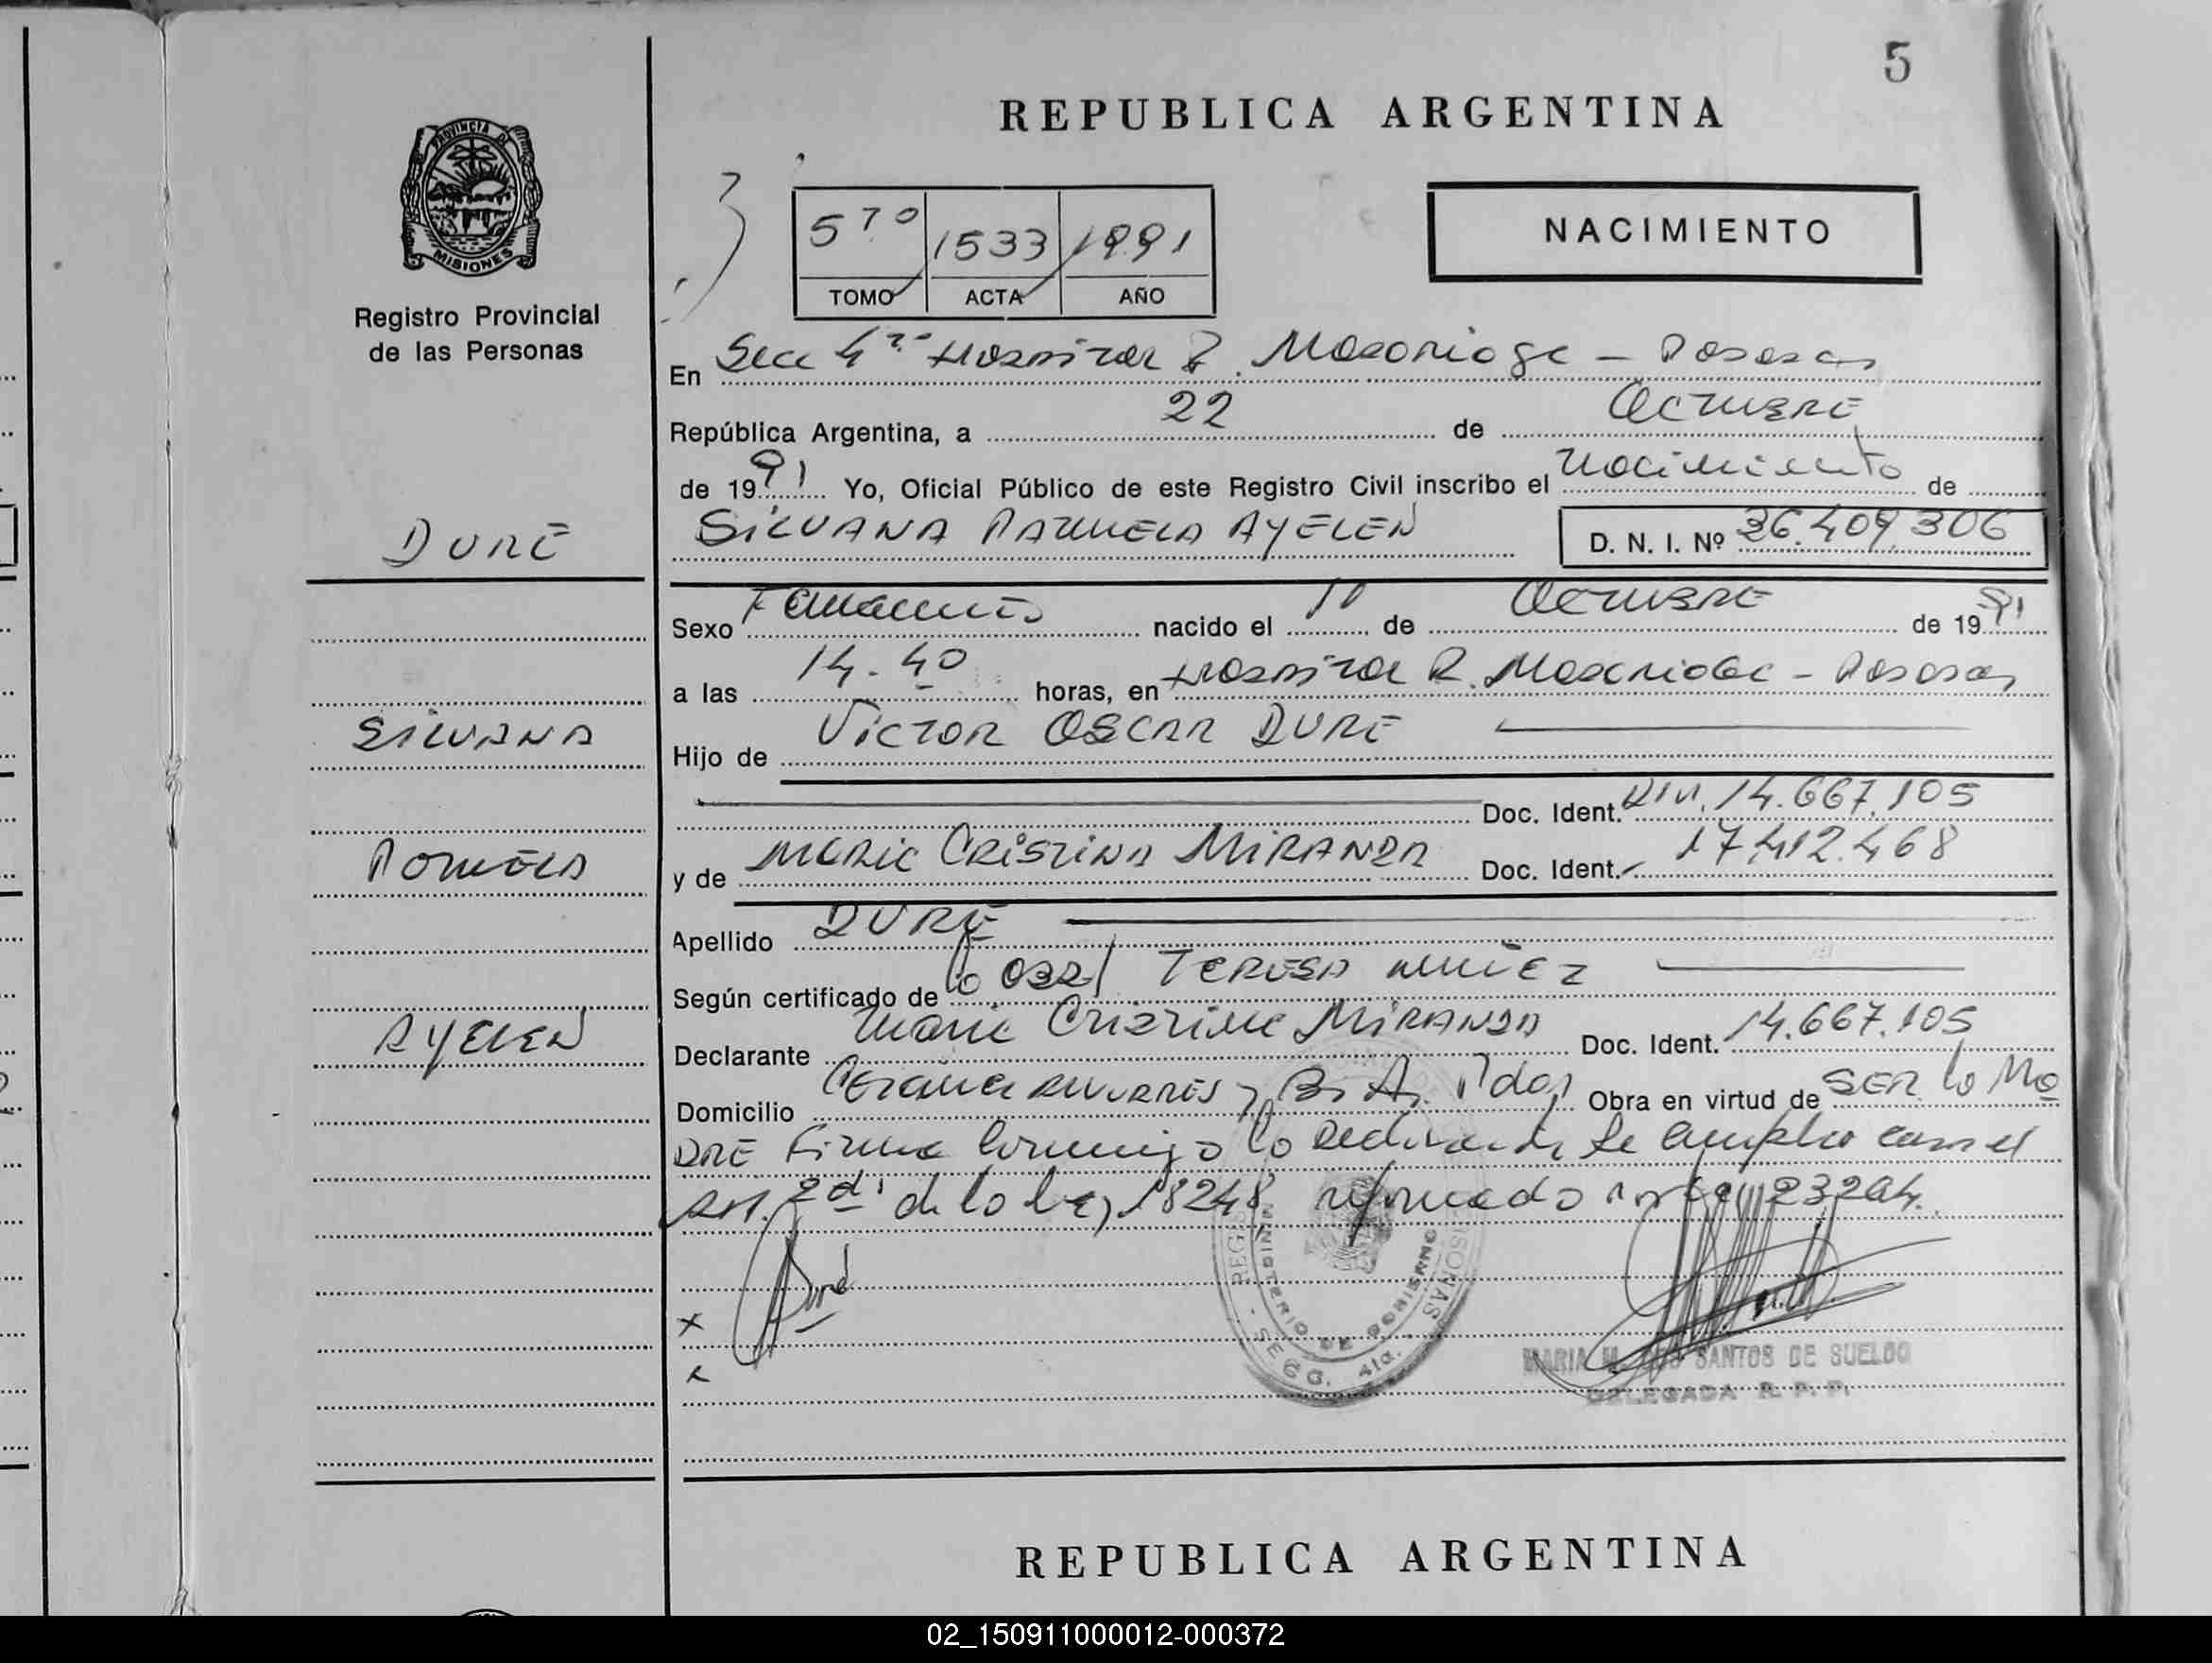 5
REPUBLICA ARGENTINA
PROVINCIA DE
MISIONES
Registro Provincial
de las Personas
57º 1533 1991
TOMO ACTA AÑO
NACIMIENTO
En Secc 4ta Hospital R. Madariaga - Posadas
República Argentina, a 22 de Octubre
de 1991 Yo, Oficial Público de este Registro Civil inscribo el Nacimiento de
DURE
SILVANA PAMELA AYELEN D. N. I. Nº 36.409.306
Sexo Femenino nacido el 10 de Octubre de 1991
a las 14-40 horas, en Hospital R. Madariaga - Posadas
SILVANA
Hijo de VICTOR OSCAR DURE
Doc. Ident. DNI. 14.667.105
PAMELA
y de MARIA CRISTINA MIRANDA Doc. Ident. 17.412.468
Apellido DURE
Según certificado de la Obst TERESA NUÑEZ
AYELEN
Declarante Maria Cristina MIRANDA Doc. Ident. 14.667.105
Domicilio y Bs As. Pdas Obra en virtud de SER la MA
DRE Firma conmigo la declarante Se cumplio con el
Art. 2do de la ley 18248 reformado por ley 23264.
x Duré
x
REGIS SONAS - SECC. 4ta.
MINISTERIO DE GOBIERNO
MARIA M. DOS SANTOS DE SUELDO
DELEGADA R. P. P.
REPUBLICA ARGENTINA
02_150911000012-000372